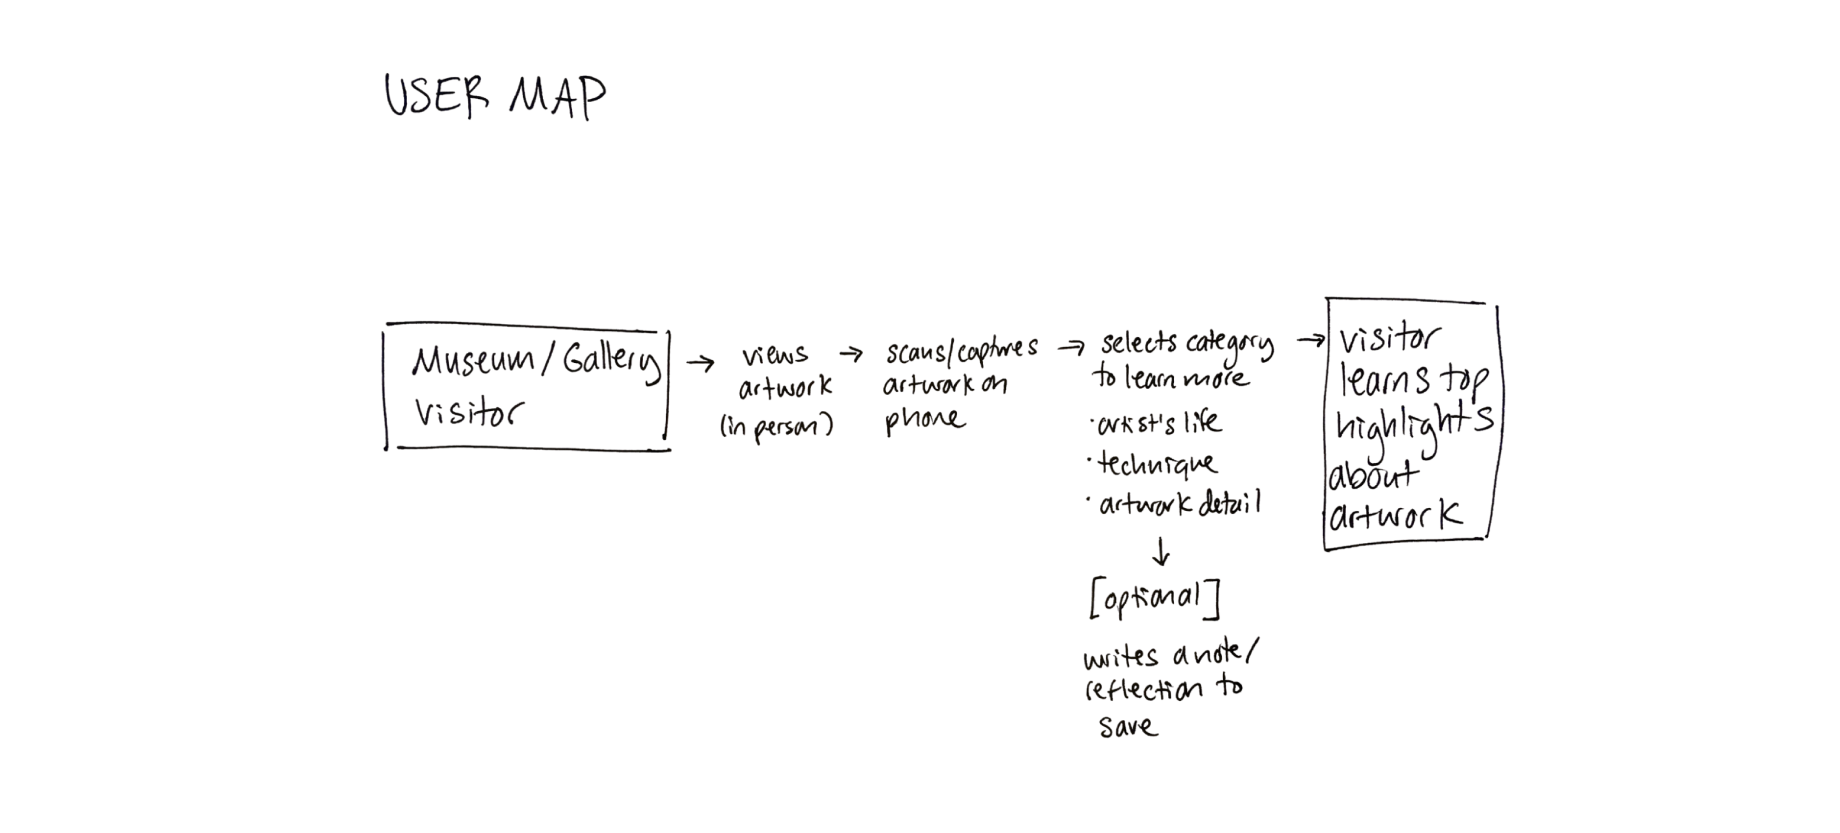 USER MAP
Museum/Gallery
visitor
→ views
artwork
(in person)
→ scans/captures
artwork on
phone
→ selects category
to learn more
· artist's life
· technique
· artwork detail
↓
[optional]
writes a note/
reflection to
save
→ visitor
learns top
highlights
about
artwork